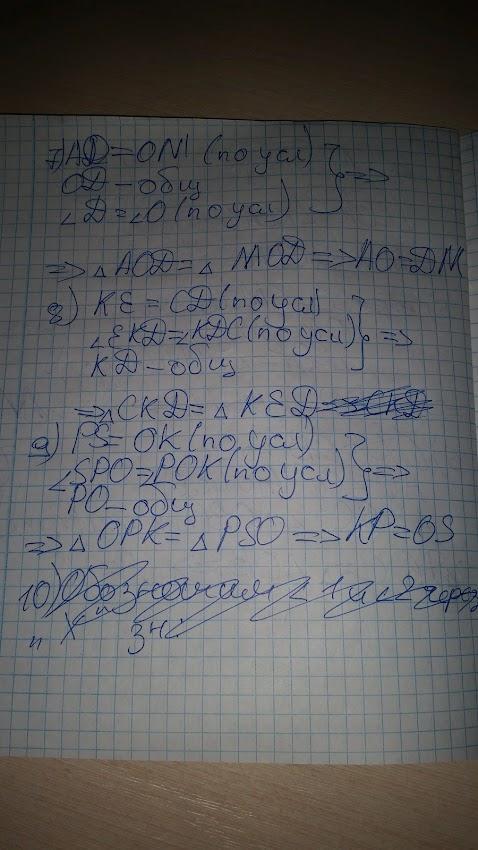 7) AD=OM (по усл)
OD-общ
∠D=∠O (по усл) } =>
=> △AOD=△ MOD => AO=DM
8) KE=CD (по усл)
∠EKD=∠KDC (по усл) } =>
KD-общ
=> △CKD=△KED
9) PS=OK (по усл)
∠SPO=POK (по усл) } =>
PO-общ
=> △OPK=△PSO => KP=OS
10) Обозначам ∠1 и ∠2 через